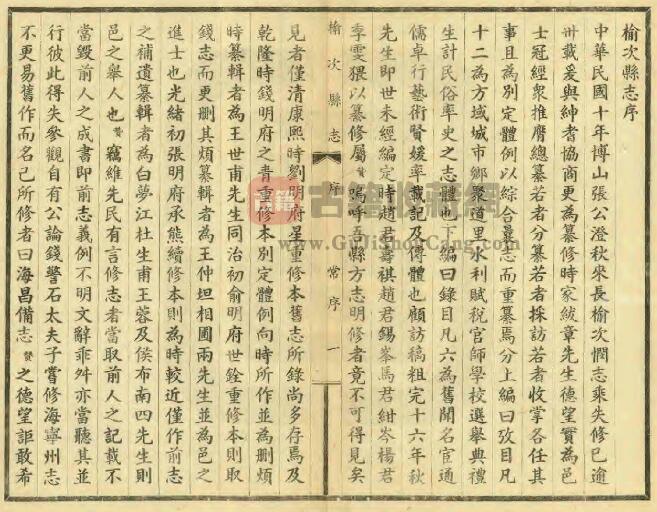 榆次縣志序
中華民國十年博山張公澄秋來長榆次憫志乘失修已逾
卅載爰與紳者協商更為纂修時家紱章先生德望實為邑
士冠經衆推膺總纂若者分纂若者採訪若者收掌各任其
事且為別定體例以綜合曩志而重纂焉分上編曰攷目凡
十二為方域城市鄉聚道里水利賦税官師學校選舉典禮
生計民俗率史之志體也下編曰錄目凡六為舊聞名宦通
儒卓行藝術賢媛率載記及傳體也顧訪稿粗完十六年秋
先生即世未經編定時趙君壽祺趙君錫峯馬君紺岑楊君
季雯猥以纂修屬贊嗚呼吾縣方志明修者竟不可得見矣
榆次縣志
序
常序
一
見者僅清康熙時劉明府星重修本舊志所錄尚多存焉及
乾隆時錢明府之青重修本別定體例向時所作並為刪煩
時纂輯者為王世甫先生同治初俞明府世銓重修本則取
錢志而更删其煩纂輯者為王仲坦相國兩先生並為邑之
進士也光緒初張明府承熊續修本則為時較近僅作前志
之補遺纂輯者為白夢江杜生甫王蓉及侯布南四先生則
邑之舉人也贊竊維先民有言修志者當取前人之記載不
當毀前人之成書即前志義例不明文辭乖舛亦當聽其並
行彼此得失參觀自有公論錢警石太夫子嘗修海寧州志
不更易舊作而名己所修者曰海昌備志贊之德望詎敢希
古籍收藏網
www.GuJiShouCang.com